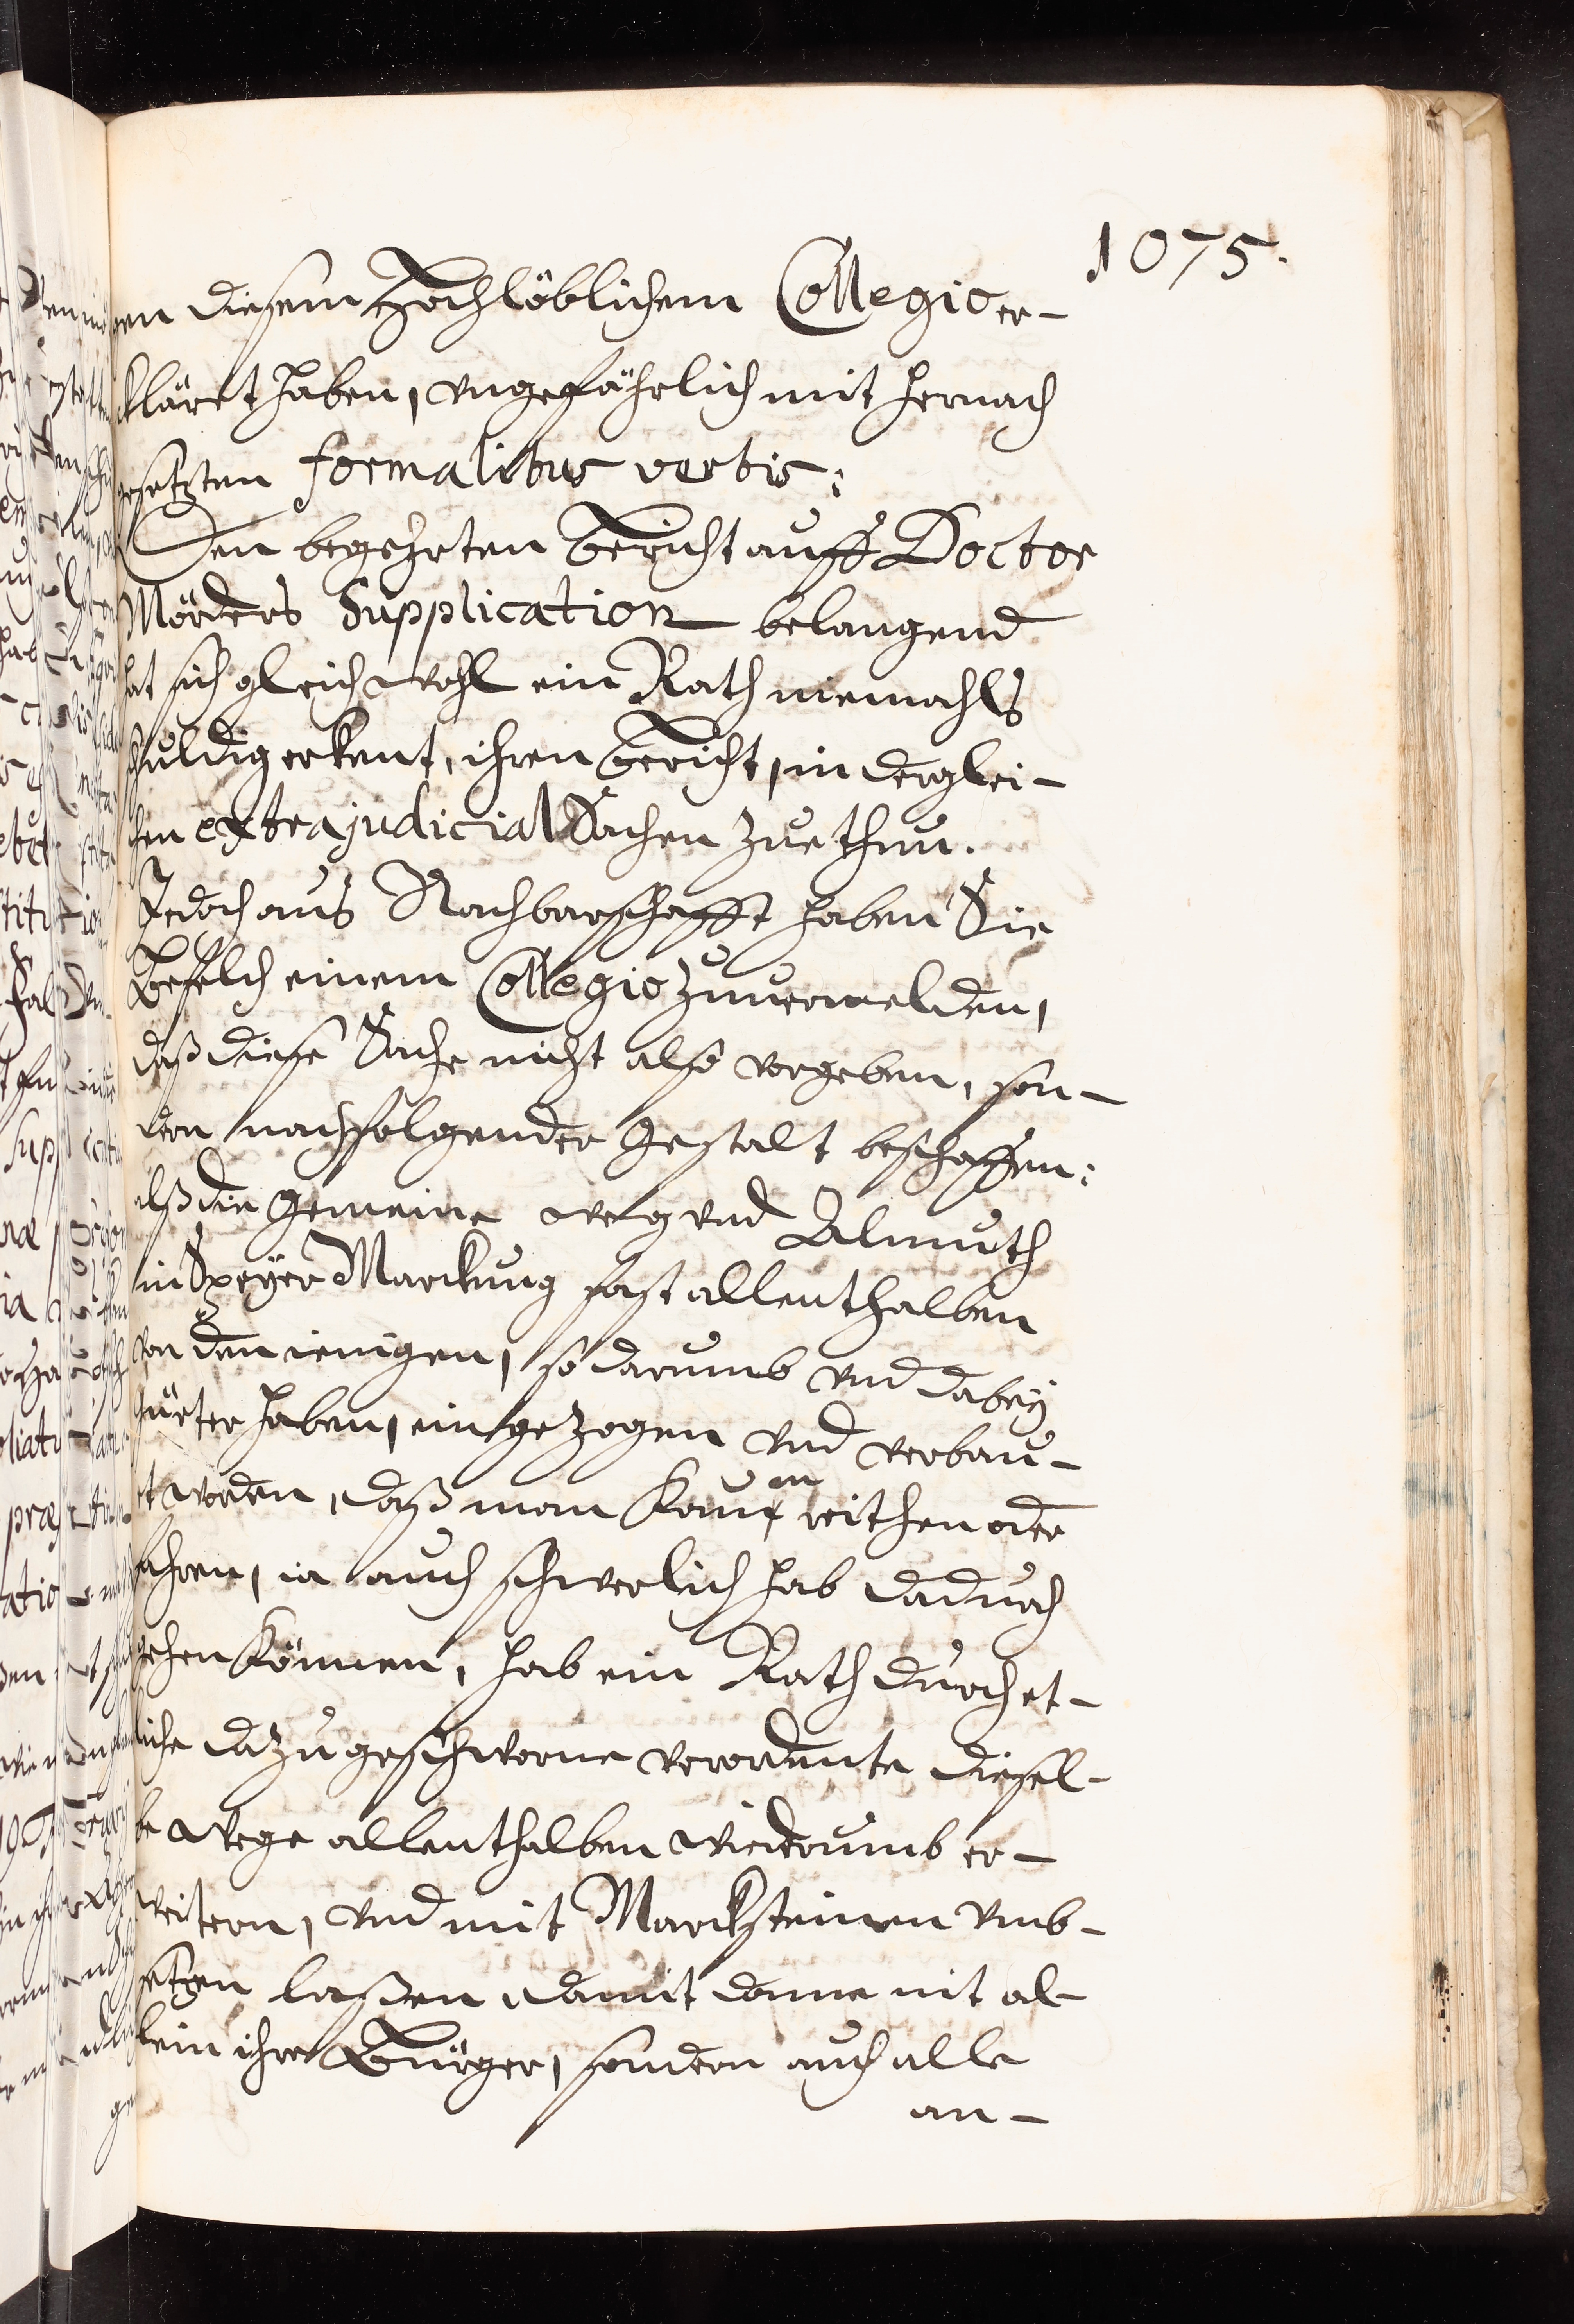 1075.
gen diesem Hochlöblichem Collegio er-
kläret haben, ungefährlich mit hernach
gesetzten formalibus verbis:
Den begehrten bericht auff Doctor
Mörders Supplication belangend
hat sich gleichwohl ein Rath niemahls
schuldig erkent, ihren bericht, in derglei-
chen extrajudicial Sachen zue thun.
Jedoch aus Nachbarschafft haben Sie
Befelch einem Collegio zuuermelden,
daß diese Sache nicht also vorgeben, son-
dern nachfolgender gestalt beschaffen:
alß die gemeine weg und Almuth
in Speyer Marckung fast allenthalben
von den ienigen, so darumb und dabey
gürter haben, eingezogen und verbau-
et worden, daß man kaum reithen oder
fahren, ia auch schwerlich hab dadurch
gehen können, hab ein Rath durch et-
liche dazu geschworne verordente diesel-
be wege allenthalben wiederumb er-
weitern, und mit Marcksteinen umb-
setzen laßen, damit dann nit al-
lein ihre Bürger, sondern auch alle
an-